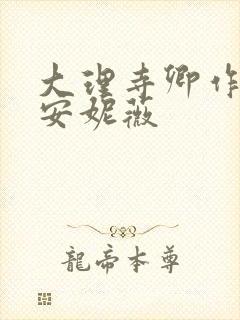 大理寺卿作
安妮薇
龍帝本尊